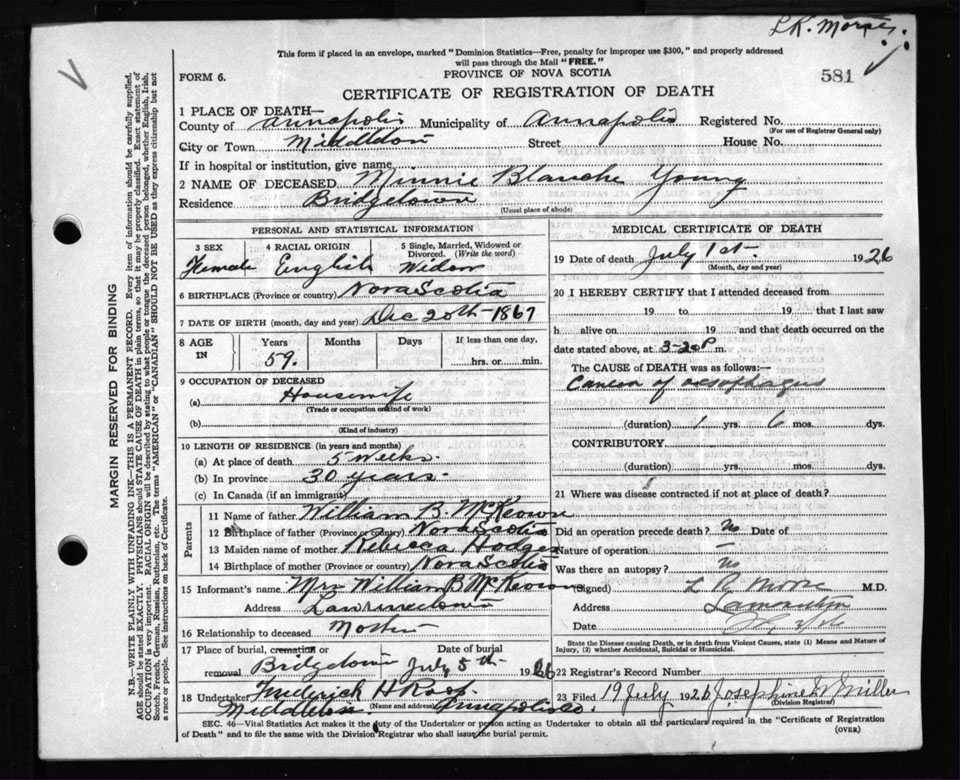 L.R. Morse
This form if placed in an envelope, marked "Dominion Statistics—Free, penalty for improper use $300," and properly addressed
will pass through the Mail "FREE."
FORM 6.
PROVINCE OF NOVA SCOTIA
581
CERTIFICATE OF REGISTRATION OF DEATH
1 PLACE OF DEATH—
County of Annapolis Municipality of Annapolis Registered No.
(For use of Registrar General only)
City or Town Middleton Street House No.
If in hospital or institution, give name
2 NAME OF DECEASED Minnie Blanche Young
Residence Bridgetown
(Usual place of abode)
PERSONAL AND STATISTICAL INFORMATION
3 SEX 4 RACIAL ORIGIN 5 Single, Married, Widowed or Divorced. (Write the word)
Female English Widow
6 BIRTHPLACE (Province or country) Nova Scotia
7 DATE OF BIRTH (month, day and year) Dec 20th - 1867
8 AGE IN Years Months Days If less than one day,
59. hrs. or min.
9 OCCUPATION OF DECEASED
(a) Housewife
(Trade or occupation or kind of work)
(b)
(Kind of industry)
10 LENGTH OF RESIDENCE (in years and months)
(a) At place of death 5 weeks.
(b) In province 30 years.
(c) In Canada (if an immigrant)
Parents
11 Name of father William B. McKeown
12 Birthplace of father (Province or country) Nova Scotia
13 Maiden name of mother Rebecca Hodges
14 Birthplace of mother (Province or country) Nova Scotia
15 Informant's name Mrs William B McKeown
Address Lawrencetown
16 Relationship to deceased Mother
17 Place of burial, cremation or removal Bridgetown Date of burial July 5th 1926
18 Undertaker Frederick H Roop
(Name and address)
Middleton Annapolis Co.
MEDICAL CERTIFICATE OF DEATH
19 Date of death July 1st 1926
(Month, day and year)
20 I HEREBY CERTIFY that I attended deceased from
19 to 19 that I last saw
h alive on 19 and that death occurred on
date stated above, at 3-20 P m.
The CAUSE of DEATH was as follows:—
Cancer of oesophagus
(duration) 1 yrs. 6 mos. dys.
CONTRIBUTORY
(duration) yrs. mos. dys.
21 Where was disease contracted if not at place of death?
Did an operation precede death? No Date of
Nature of operation —
Was there an autopsy? No
(Signed) L R Morse M.D.
Address Lawrencetown
Date
State the Disease causing Death, or in death from Violent Causes, state (1) Means and Nature of
Injury, (2) whether Accidental, Suicidal or Homicidal.
22 Registrar's Record Number
23 Filed 19 July 1926 Josephine W Miller
(Division Registrar)
SEC. 46—Vital Statistics Act makes it the duty of the Undertaker or person acting as Undertaker to obtain all the particulars required in the "Certificate of Registration
of Death" and to file the same with the Division Registrar who shall issue the burial permit.
(OVER)
MARGIN RESERVED FOR BINDING
N.B.—WRITE PLAINLY WITH UNFADING INK—THIS IS A PERMANENT RECORD. Every item of information should be carefully supplied.
AGE should be stated EXACTLY. PHYSICIANS should STATE CAUSE OF DEATH in plain terms, so that it may be properly classified. Exact statement of
OCCUPATION is very important. RACIAL ORIGIN will be described by stating to what people or tongue the deceased person belonged, whether English, Irish,
Scotch, French, German, Russian, Ruthenian, etc. The terms "AMERICAN" or "CANADIAN" SHOULD NOT BE USED as they express citizenship but not
a race or people. See instructions on back of Certificate.